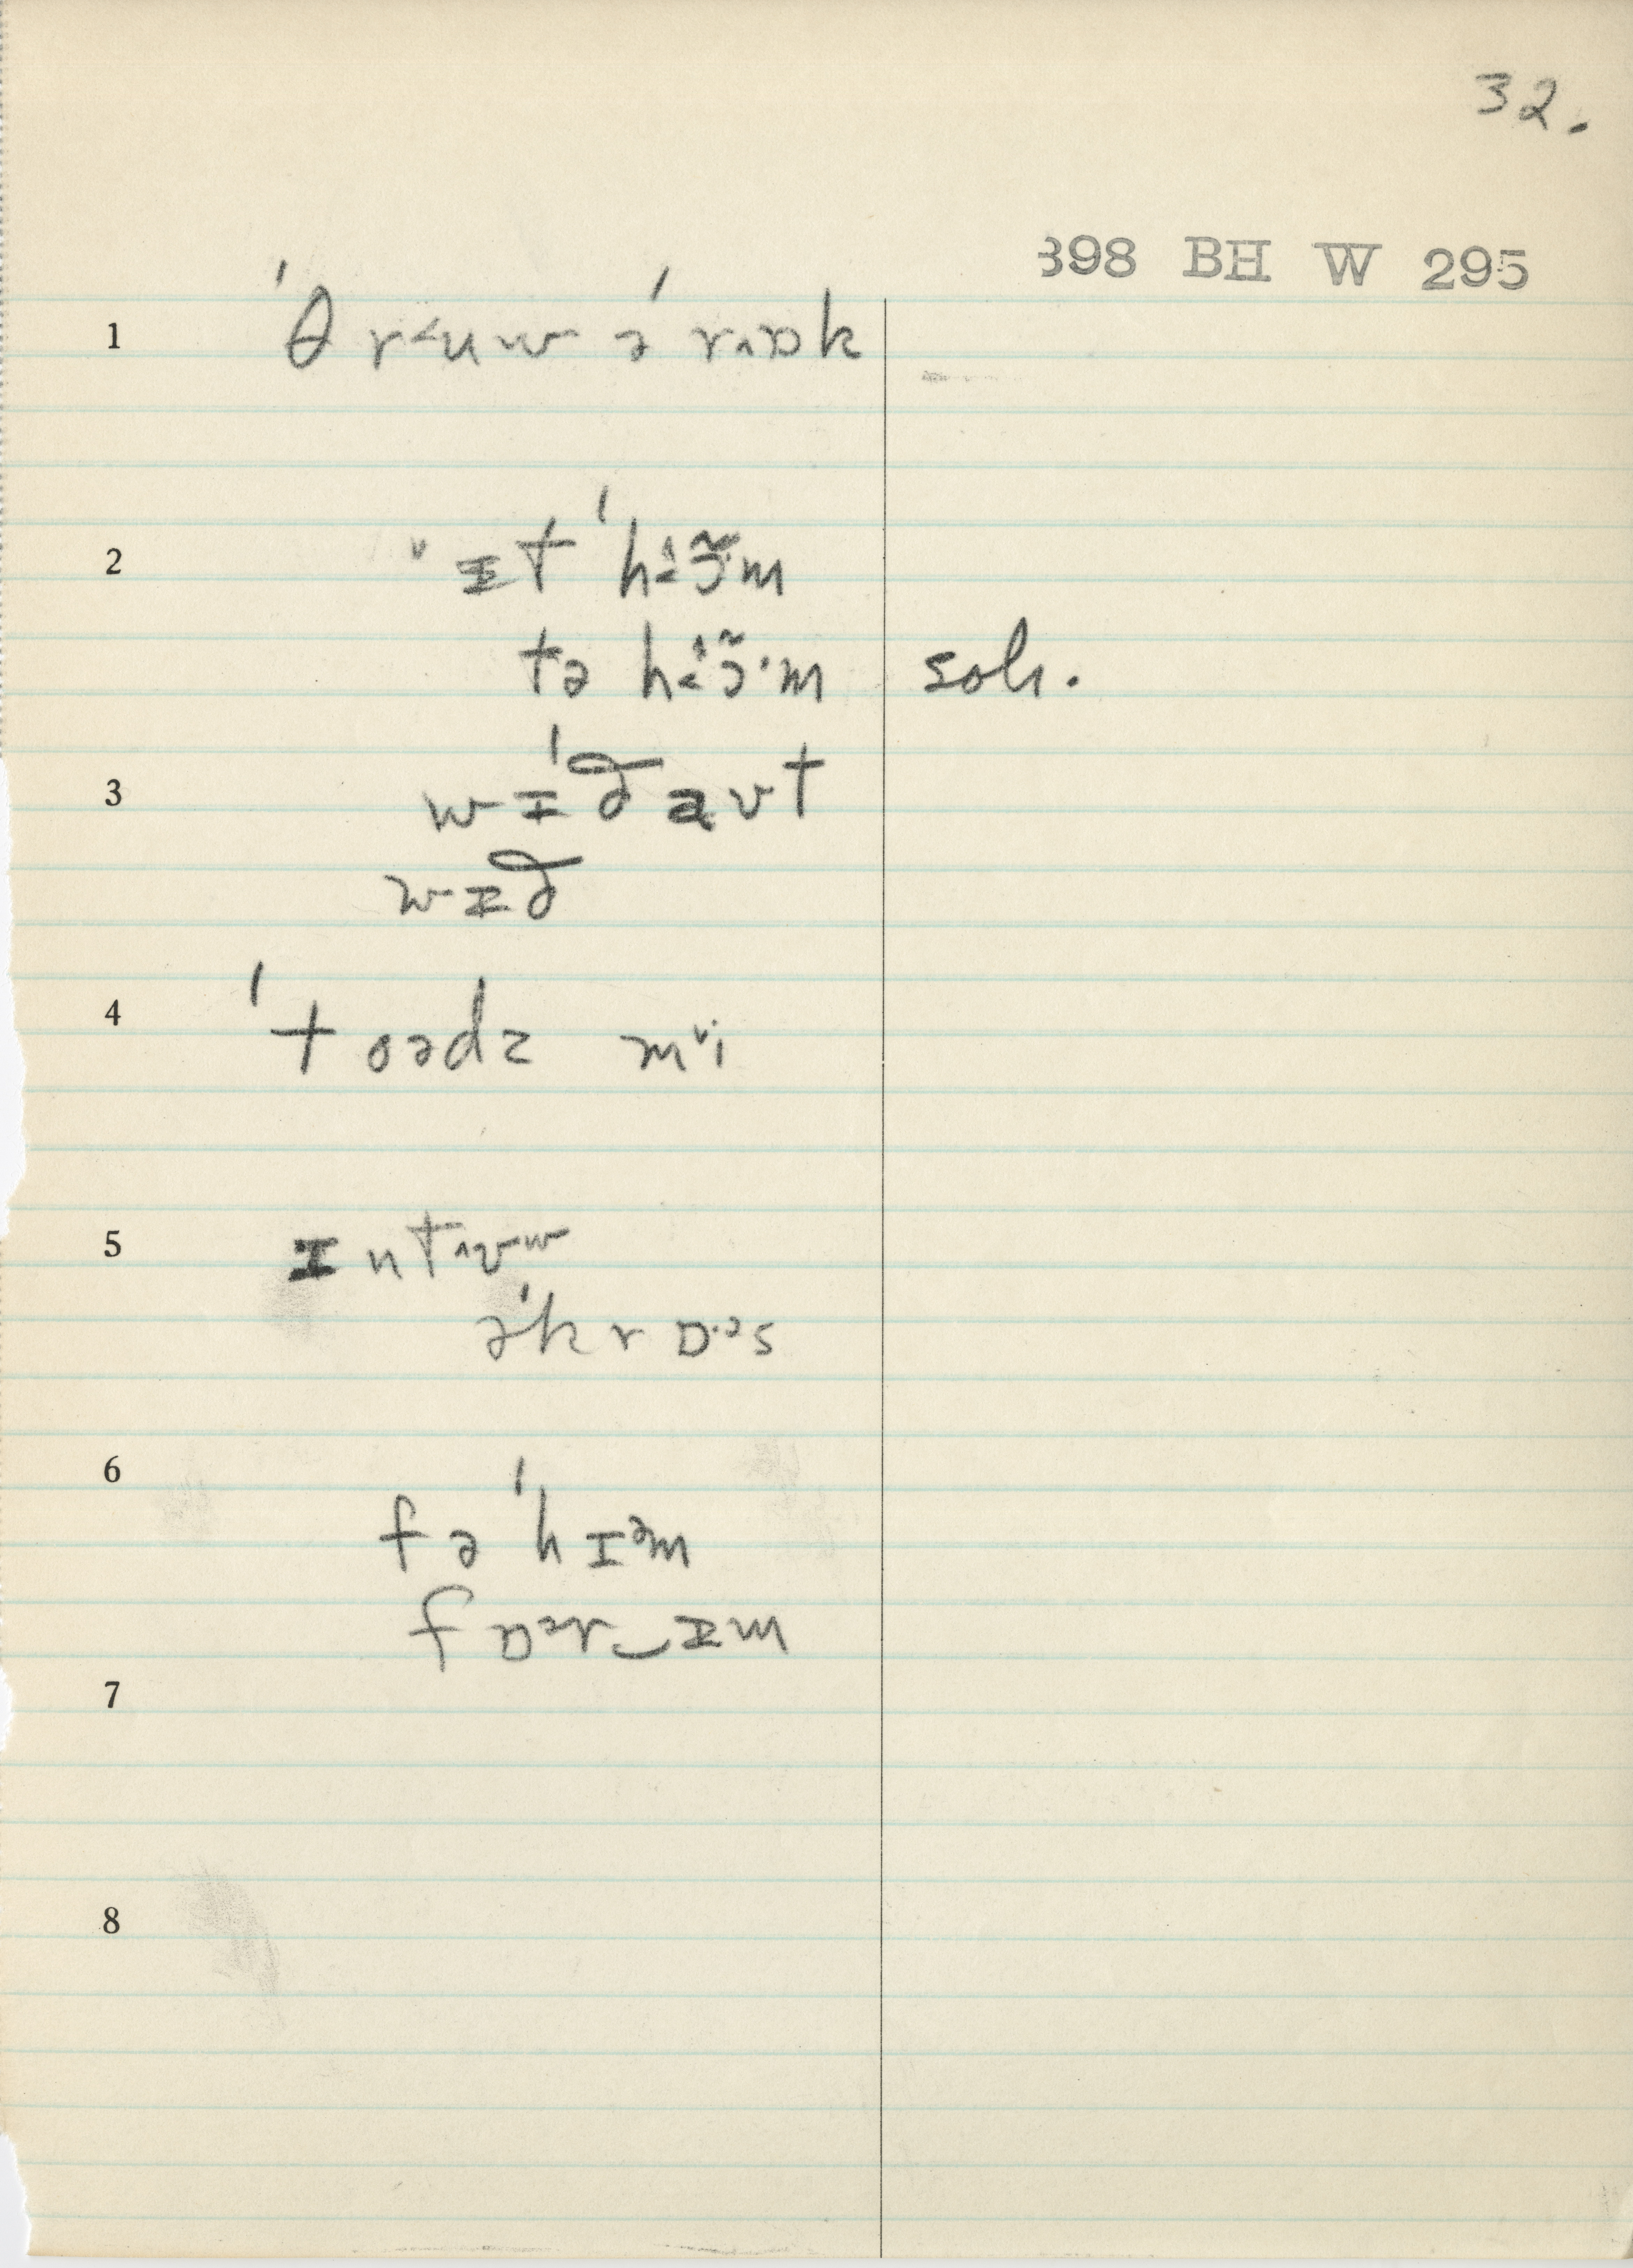 32.
898 BH W 295
1 ˈθr˂uw əˈr˄ɒk
2 ɪt ˈhɪə̃m
tə hɪə̃·m soh.
3 wɪˈðaʊt
wɪð
4 ˈtoədz mi
5 ɪnt˄ʊw
əˈkrɒ·əs
6 fə ˈhɪəm
fɒər‿ɪm
7
8